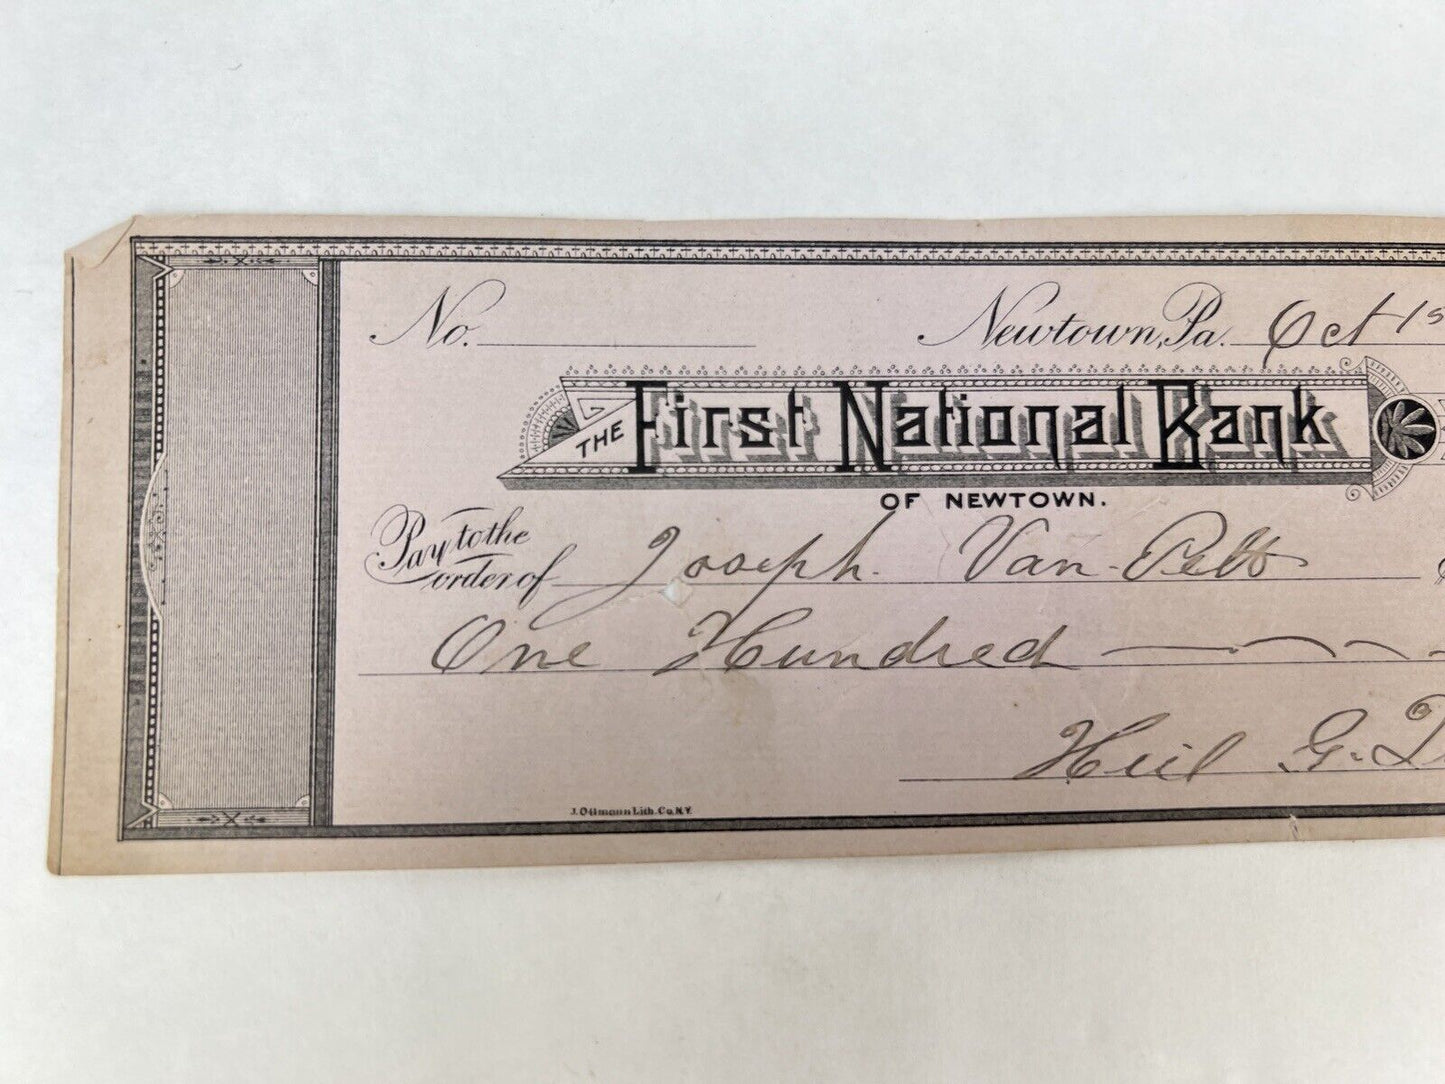 No. Newtown, Pa. Oct 1s
THE First National Bank
OF NEWTOWN.
Pay to the order of Joseph Van Pelt
One Hundred
G.
J. Ottmann Lith. Co. N.Y.